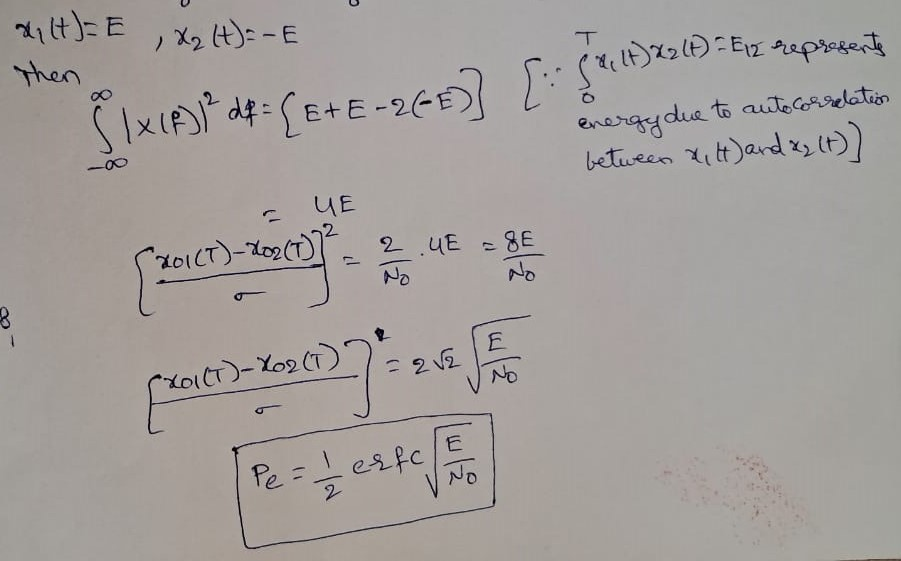 x₁(t)=E , x₂(t)=-E
Then
∞∫-∞ |X(f)|² df = [E+E-2(-E)] [∵ T∫0 x₁(t)x₂(t)=E₁₂ represents
energy due to autocorrelation
between x₁(t) and x₂(t)]
= 4E
[x01(T)-x02(T)/σ]² = 2/N0 . 4E = 8E/N0
8,
[x01(T)-x02(T)/σ] = 2√2 √E/N0
Pe = 1/2 erfc √E/N0